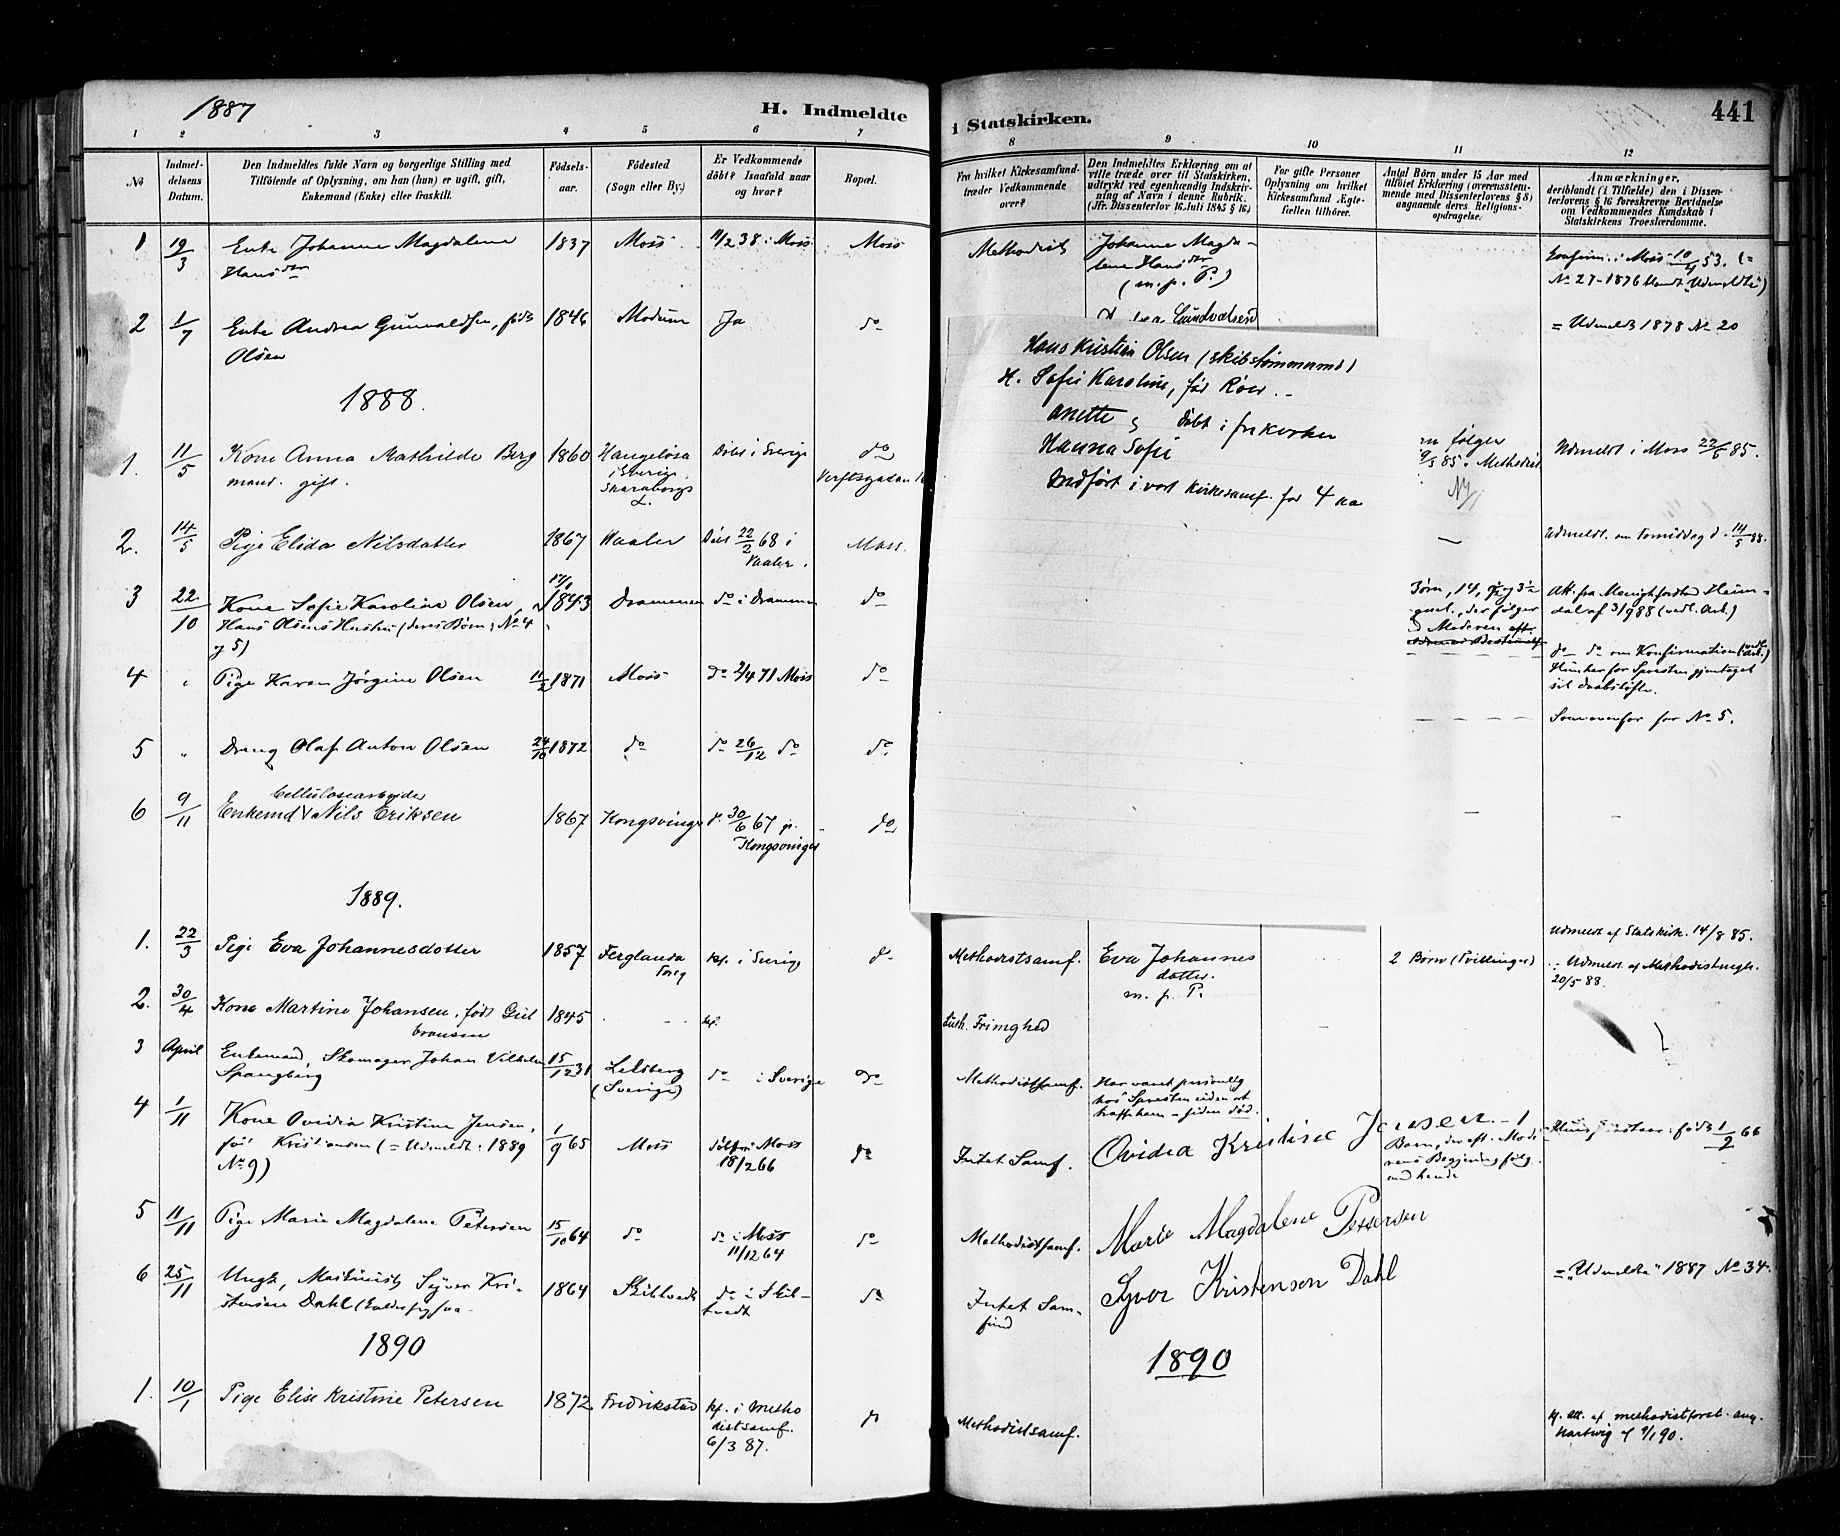 1887
H. Indmeldte i Statskirken.
441
1 2 3 4 5 6 7 8 9 10 11 12
No
Indmel-
delsens
Datum.
Den Indmeldtes fulde Navn og borgerlige Stilling med
Tilföiende af Oplysning, om han (hun) er ugift, gift,
Enkemand (Enke) eller fraskilt.
Födsels-
aar.
Födested
(Sogn eller By.)
Er Vedkommende
döbt? Isaafald naar
og hvor?
Bopæl.
Fra hvilket Kirkesamfund
træder Vedkommende
over?
Den Indmeldtes Erklæring om at
ville træde over til Statskirken,
udtrykt ved egenhændig Indskriv-
ning af Navn i denne Rubrik.
(Jfr. Dissenterlov 16. Juli 1845 § 16)
For gifte Personer
Oplysning om hvilket
Kirkesamfund Ægte-
fællen tilhörer.
Antal Börn under 15 Aar med
tilföiet Erklæring (overensstem-
mende med Dissenterlovens § 8)
angaaende deres Religions-
opdragelse.
Anmærkninger,
deriblandt (i Tilfælde) den i Dissen-
terlovens § 16 foreskrevne Bevidnelse
om Vedkommendes Kundskab i
Statskirkens Troeslærdomme.
1 19/3 Enke Johanne Magdalene 1837 Moss 11/2 38 i Moss Moss Methodist Johanne Magda-
Hansdtr
lene Hansdtr
(m. p. P.)
Confirm. i Moss 10/4 53. (=
No 27 - 1876 blandt "Udmeldte")
2 1/7 Enke Andrea Gunvaldsen, födt 1846 Modum Ja do
Olsen
= Udmeldt 1878 No 20
Hans Kristian Olsen (skibstømmermd)
H. Sofie Karoline, fød Röer. -
Anette döbt i frikirken
Hanna Sofie
Indført i vort Kirkesamf. for 4 aa
1888.
1. 11/5 Kone Anna Mathilde Berg 1860 Hangelösa Döbt i Sverige do
mand. gift.
i Sverige
Skaraborgs
L.
Verftsgaden
følger
85. Methodist
Udmeldt i Moss 22/5 85.
2. 14/5 Pige Elida Nilsdatter 1867 Vaaler Döbt 22/2 68 i
Vaaler. Moss.
Udmeldt. om Formiddag d. 14/5 88.
3 22/10 Kone Sofie Karoline Olsen, 1843 Drammen do i Drammen do
Hans Olsens Hustru (deres Børn: No 4
og 5)
Børn, 14,
der følger
Moderen
Att. fra Menighforstd Heim-
dal af 3/9 88 (vedl. Ark.)
4 " Pige Karen Jörgine Olsen 11/2 1871 Moss do 2/4 71 Moss do
do do om Konfirmation
for Presten gjentaget
sit Daabsløfte.
5 " Dreng Olaf Anton Olsen 24/10 1872 do do 26/12 do do
Som ovenfor for No 5.
6 9/11 Cellulosearbeider
Enkemd Nils Eriksen 1867 Kongsvinger d. 30/6 67 i
Kongsvinger do
1889.
1. 22/3 Pige Eva Johannesdotter 1857 Ferglanda kf. i Sverige do Methodistsamf. Eva Johannes
datter.
m. p. P.
2 Børn (Tvillinger)
Udmeldt af Statskirk. 14/8 85.
Udmeldt af Methodistmgh.
20/5 88.
2. 30/4 Kone Martine Johansen, født Gul 1845 - - kf. Luth. Frimghed
bransen
3 April Enkemand, Skomager Johan Vilhelm 15/12 31 do i Sverige do Methodistsamf.
Spangberg
(Sverige)
Har været personlig
hos Spresten uden at
træffe ham - siden død.
4 1/11 Kone Ovidia Kristine Jensen, 1/9 65 Moss döbt i Moss
18/2 66 do Intet Samf. Ovidia Kristine Jensen. - 1
fød Kristiansen (= Udmeldt: 1889
No 9)
Barn, der eft. Mode
rens Begjæring følg.
med hende
født 1/2 66
5 11/11 Pige Marie Magdalene Petersen 15/10 64 do do i Moss
11/12 64 do Methodistsamf. Marie Magdalene Petersen
6 25/11 Ungk. Maskinist Syver Kri- 1864 Skibtvedt do i Skib-
tvedt do Intet Sam-
fund Syver Kristensen Dahl
stensen Dahl
= "Udmeldte" 1887 No 34.
1890
1890
1. 10/1 Pige Elise Kristine Petersen 1872 Fredrikstad kf. i Metho
distsamf.
6/3 87. do Methodistsamf.
kf. att. af methodistforst. Aug.
Hartvig af 9/1 90.